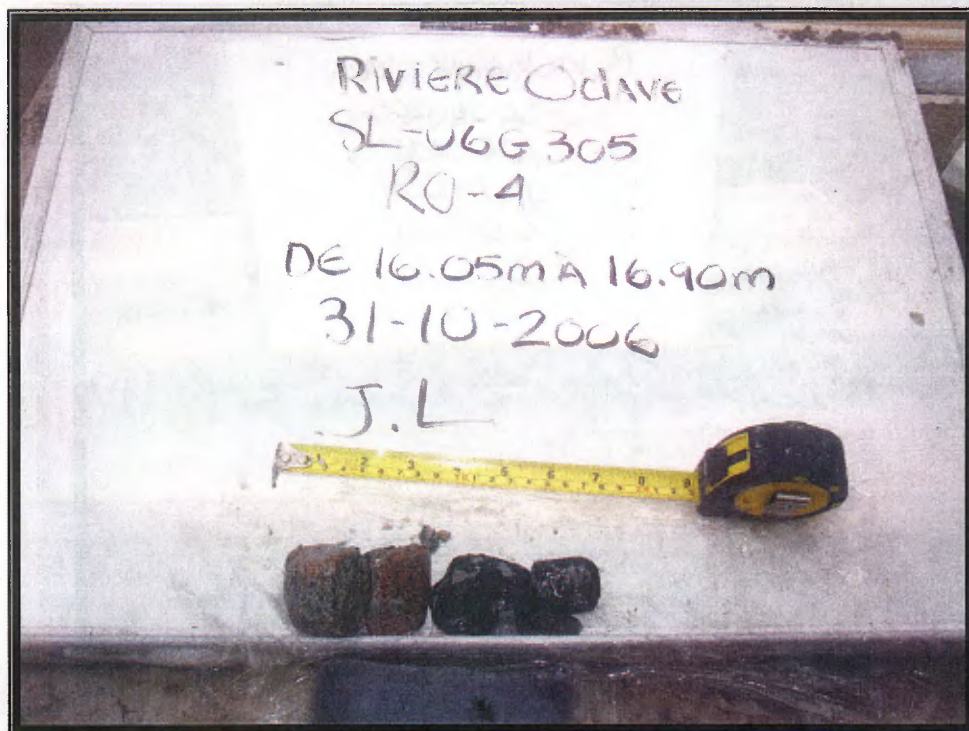 RIVIERE OCTAVE
SL-06G305
RO-4
DE 16.05m A 16.90m
31-10-2006
J.L
1 2 3 4 5 6 7 8 9